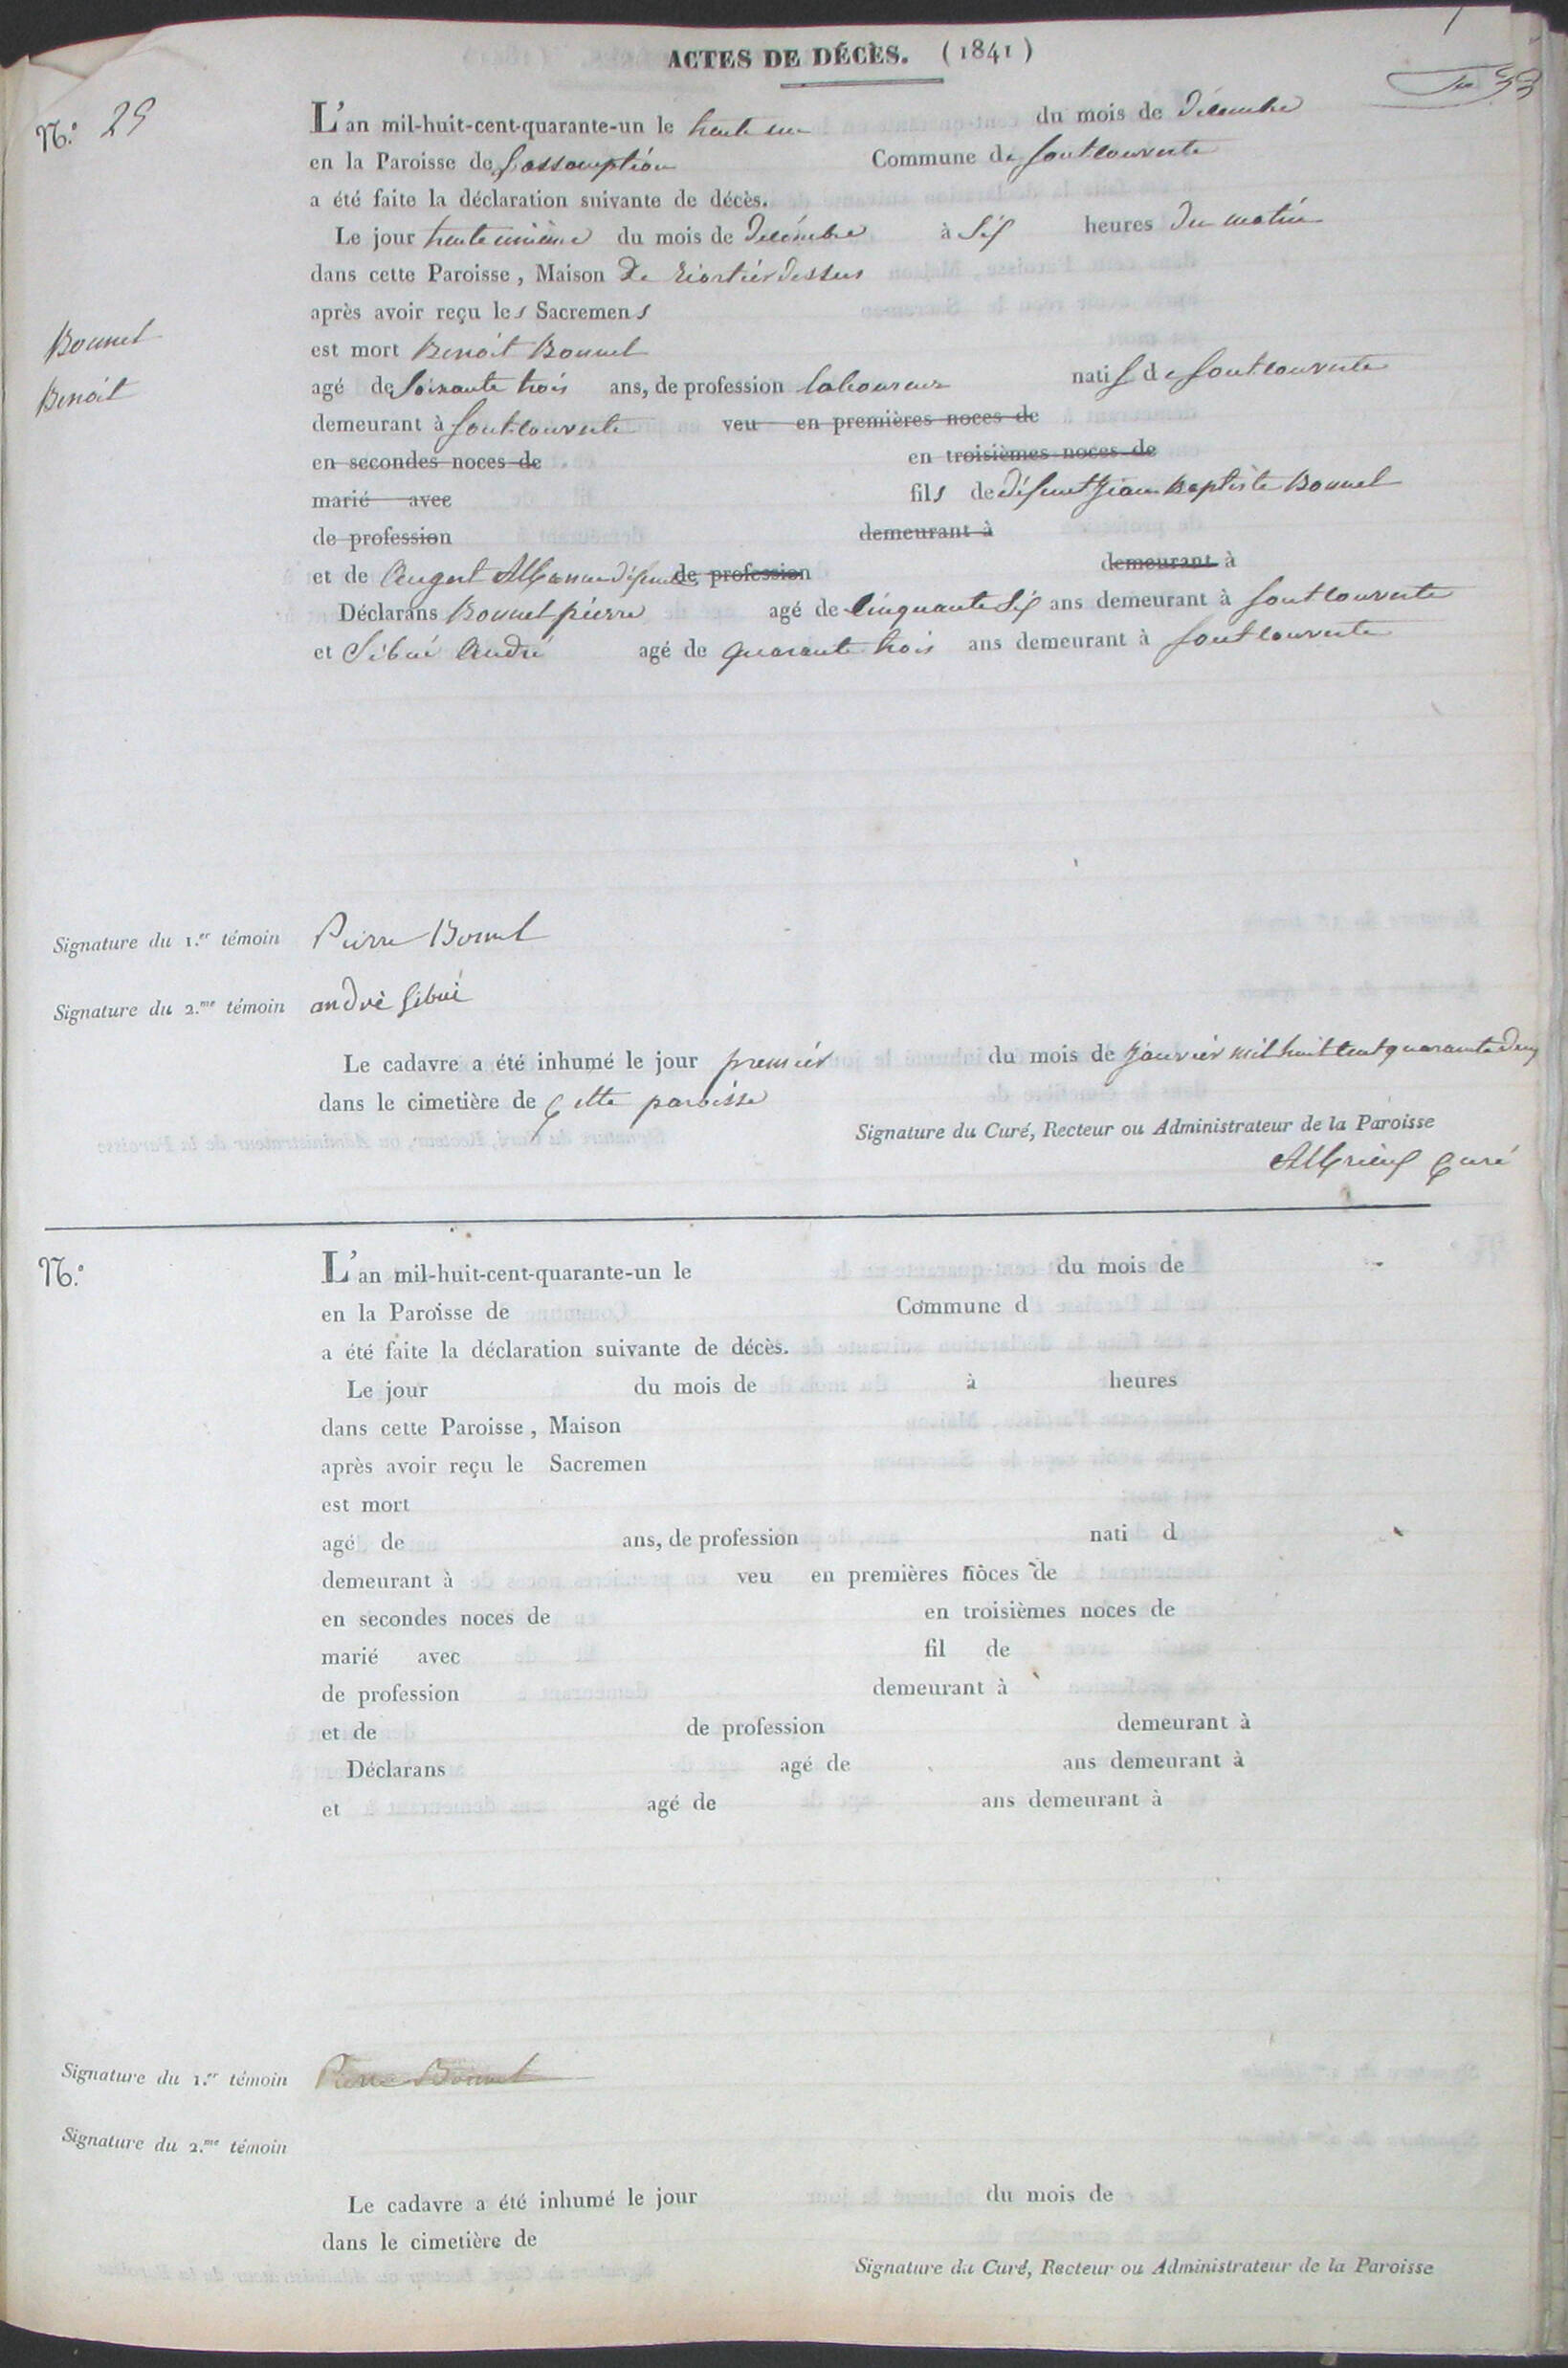 ACTES DE DÉCÈS. (1841)
N.° 29
L'an mil-huit-cent-quarante-un le trente un du mois de Décembre
en la Paroisse de l'assomption Commune de fontcouverte
a été faite la déclaration suivante de décès.
Le jour trente unième du mois de Décembre à Six heures du matin
dans cette Paroisse, Maison De Riortier dessus
après avoir reçu les Sacremens
Bonnel
est mort Benoit Bonnel
Benoit
agé de Soixante trois ans, de profession laboureur natif de fontcouverte
demeurant à fontcouverte veu en premières noces de
en secondes noces de en troisièmes noces de
marié avec fils de défunt Jean Baptiste Bonnel
de profession demeurant à
et de défunte de profession demeurant à
Déclarans Bonnel pierre agé de Cinquante Six ans demeurant à fontcouverte
et Sibué André agé de quarante trois ans demeurant à fontcouverte
Signature du 1.er témoin Pierre Bonnel
Signature du 2.me témoin andré Sibué
Le cadavre a été inhumé le jour premier du mois de Janvier mil huit cent quarante deux
dans le cimetière de cette paroisse
Signature du Curé, Recteur ou Administrateur de la Paroisse
curé
N.°
L'an mil-huit-cent-quarante-un le du mois de
en la Paroisse de Commune d
a été faite la déclaration suivante de décès.
Le jour du mois de à heures
dans cette Paroisse, Maison
après avoir reçu le Sacremen
est mort
agé de ans, de profession nati d
demeurant à veu en premières noces de
en secondes noces de en troisièmes noces de
marié avec fil de
de profession demeurant à
et de de profession demeurant à
Déclarans agé de ans demeurant à
et agé de ans demeurant à
Signature du 1.er témoin Pierre Bonnel
Signature du 2.me témoin
Le cadavre a été inhumé le jour du mois de
dans le cimetière de
Signature du Curé, Recteur ou Administrateur de la Paroisse